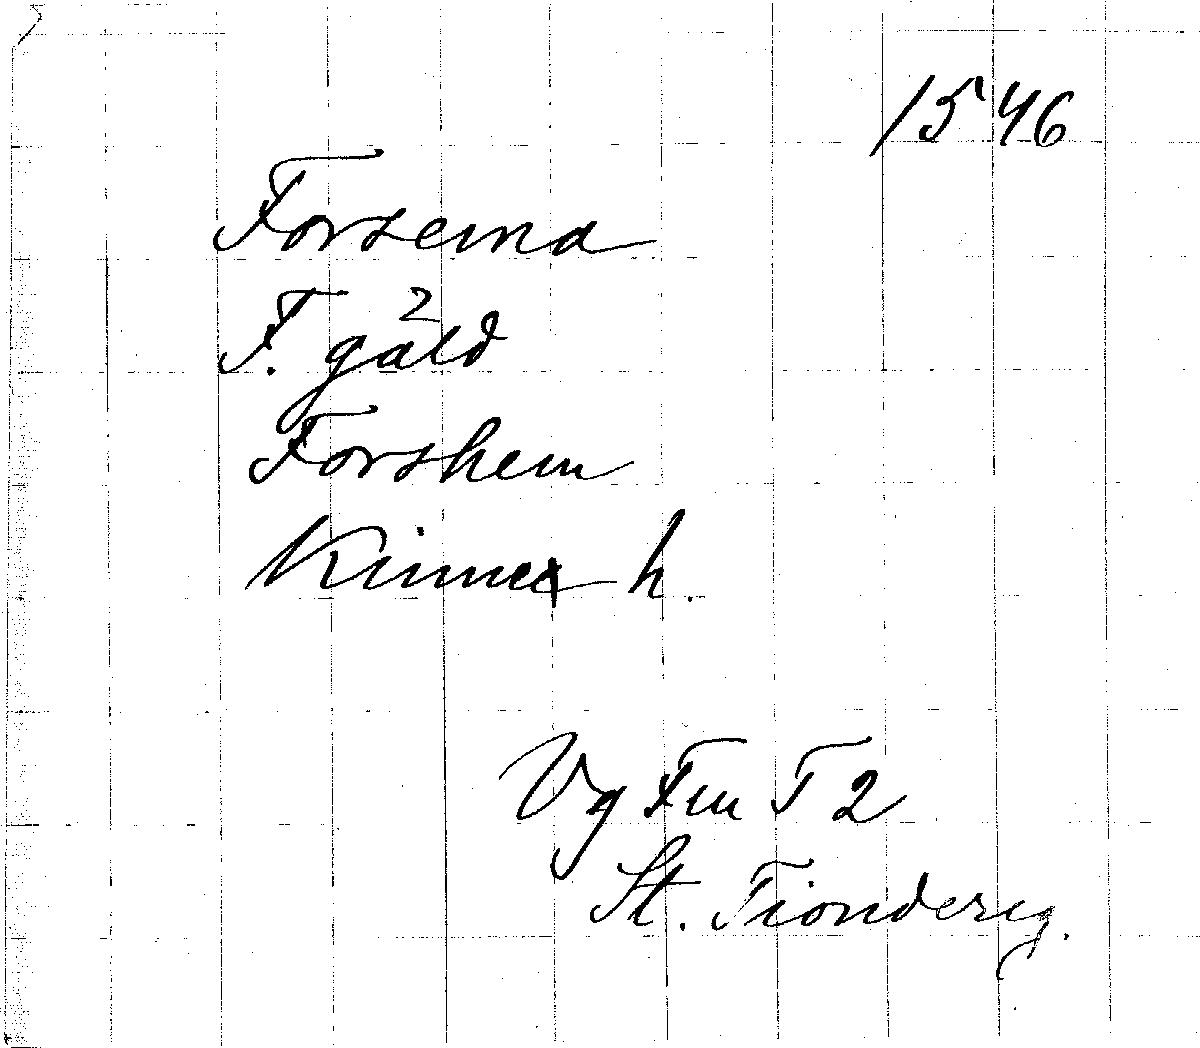 1546
Forsema
F. gäld
Forshem
Kinne h.
Vg Fm T 2
St. Tiondereg.